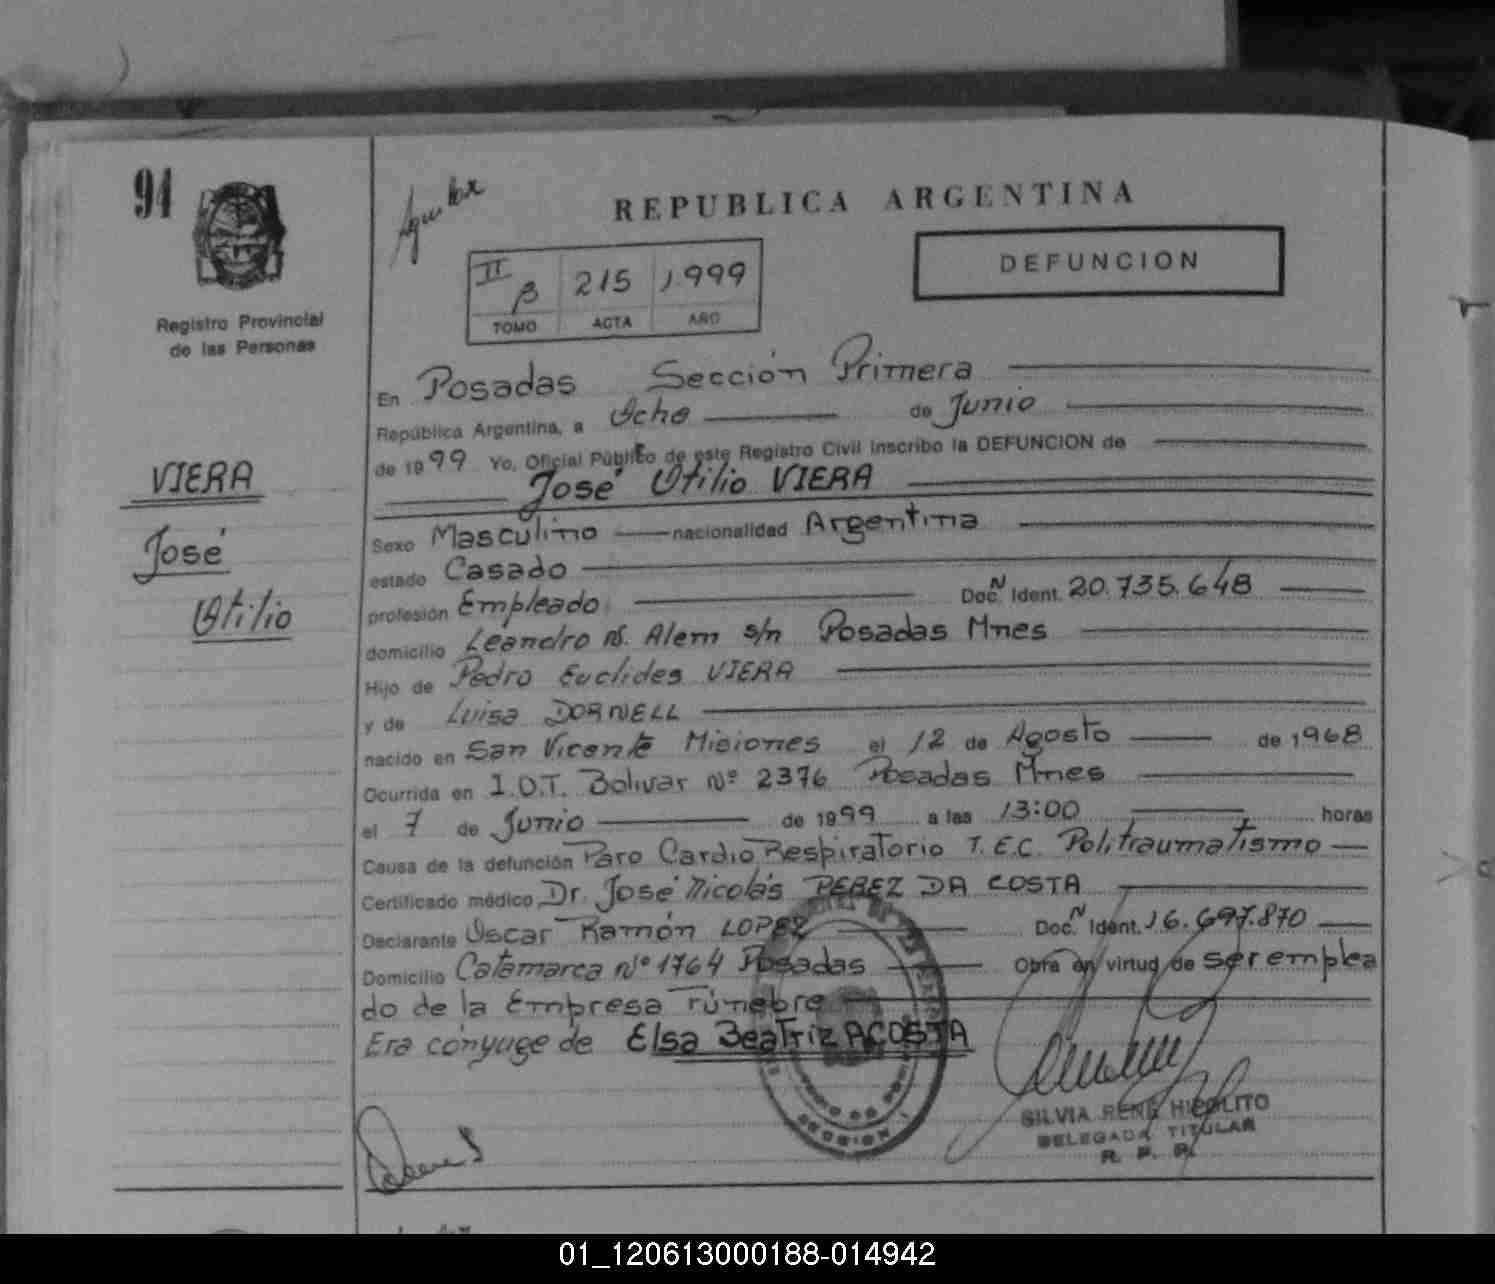 94
Registro Provincial
de las Personas
VIERA
José
Otilio
REPUBLICA ARGENTINA
DEFUNCION
II B 215 1.999
TOMO ACTA AÑO
En Posadas Sección Primera
República Argentina, a Ocho de Junio
de 1999 Yo, Oficial Público de este Registro Civil inscribo la DEFUNCION de
José Otilio VIERA
Sexo Masculino nacionalidad Argentina
estado Casado
profesión Empleado Doc. N Ident. 20.735.648
domicilio Leandro N. Alem s/n Posadas Mnes
Hijo de Pedro Euclides VIERA
y de Luisa DORNELL
nacido en San Vicente Misiones el 12 de Agosto de 1968
Ocurrida en I.O.T. Bolivar Nº 2376 Posadas Mnes
el 7 de Junio de 1999 a las 13:00 horas
Causa de la defunción Paro Cardio Respiratorio T.E.C. Politraumatismo
Certificado médico Dr. José Nicolás PEREZ DA COSTA
Declarante Oscar Ramón LOPEZ Doc. N Ident. 16.697.870
Domicilio Catamarca Nº 1764 Posadas Obra en virtud de ser emplea
do de la Empresa Fúnebre
Era cónyuge de Elsa Beatriz ACOSTA
SILVIA RENE HIPOLITO
DELEGADA TITULAR
R. P. P.
01_120613000188-014942